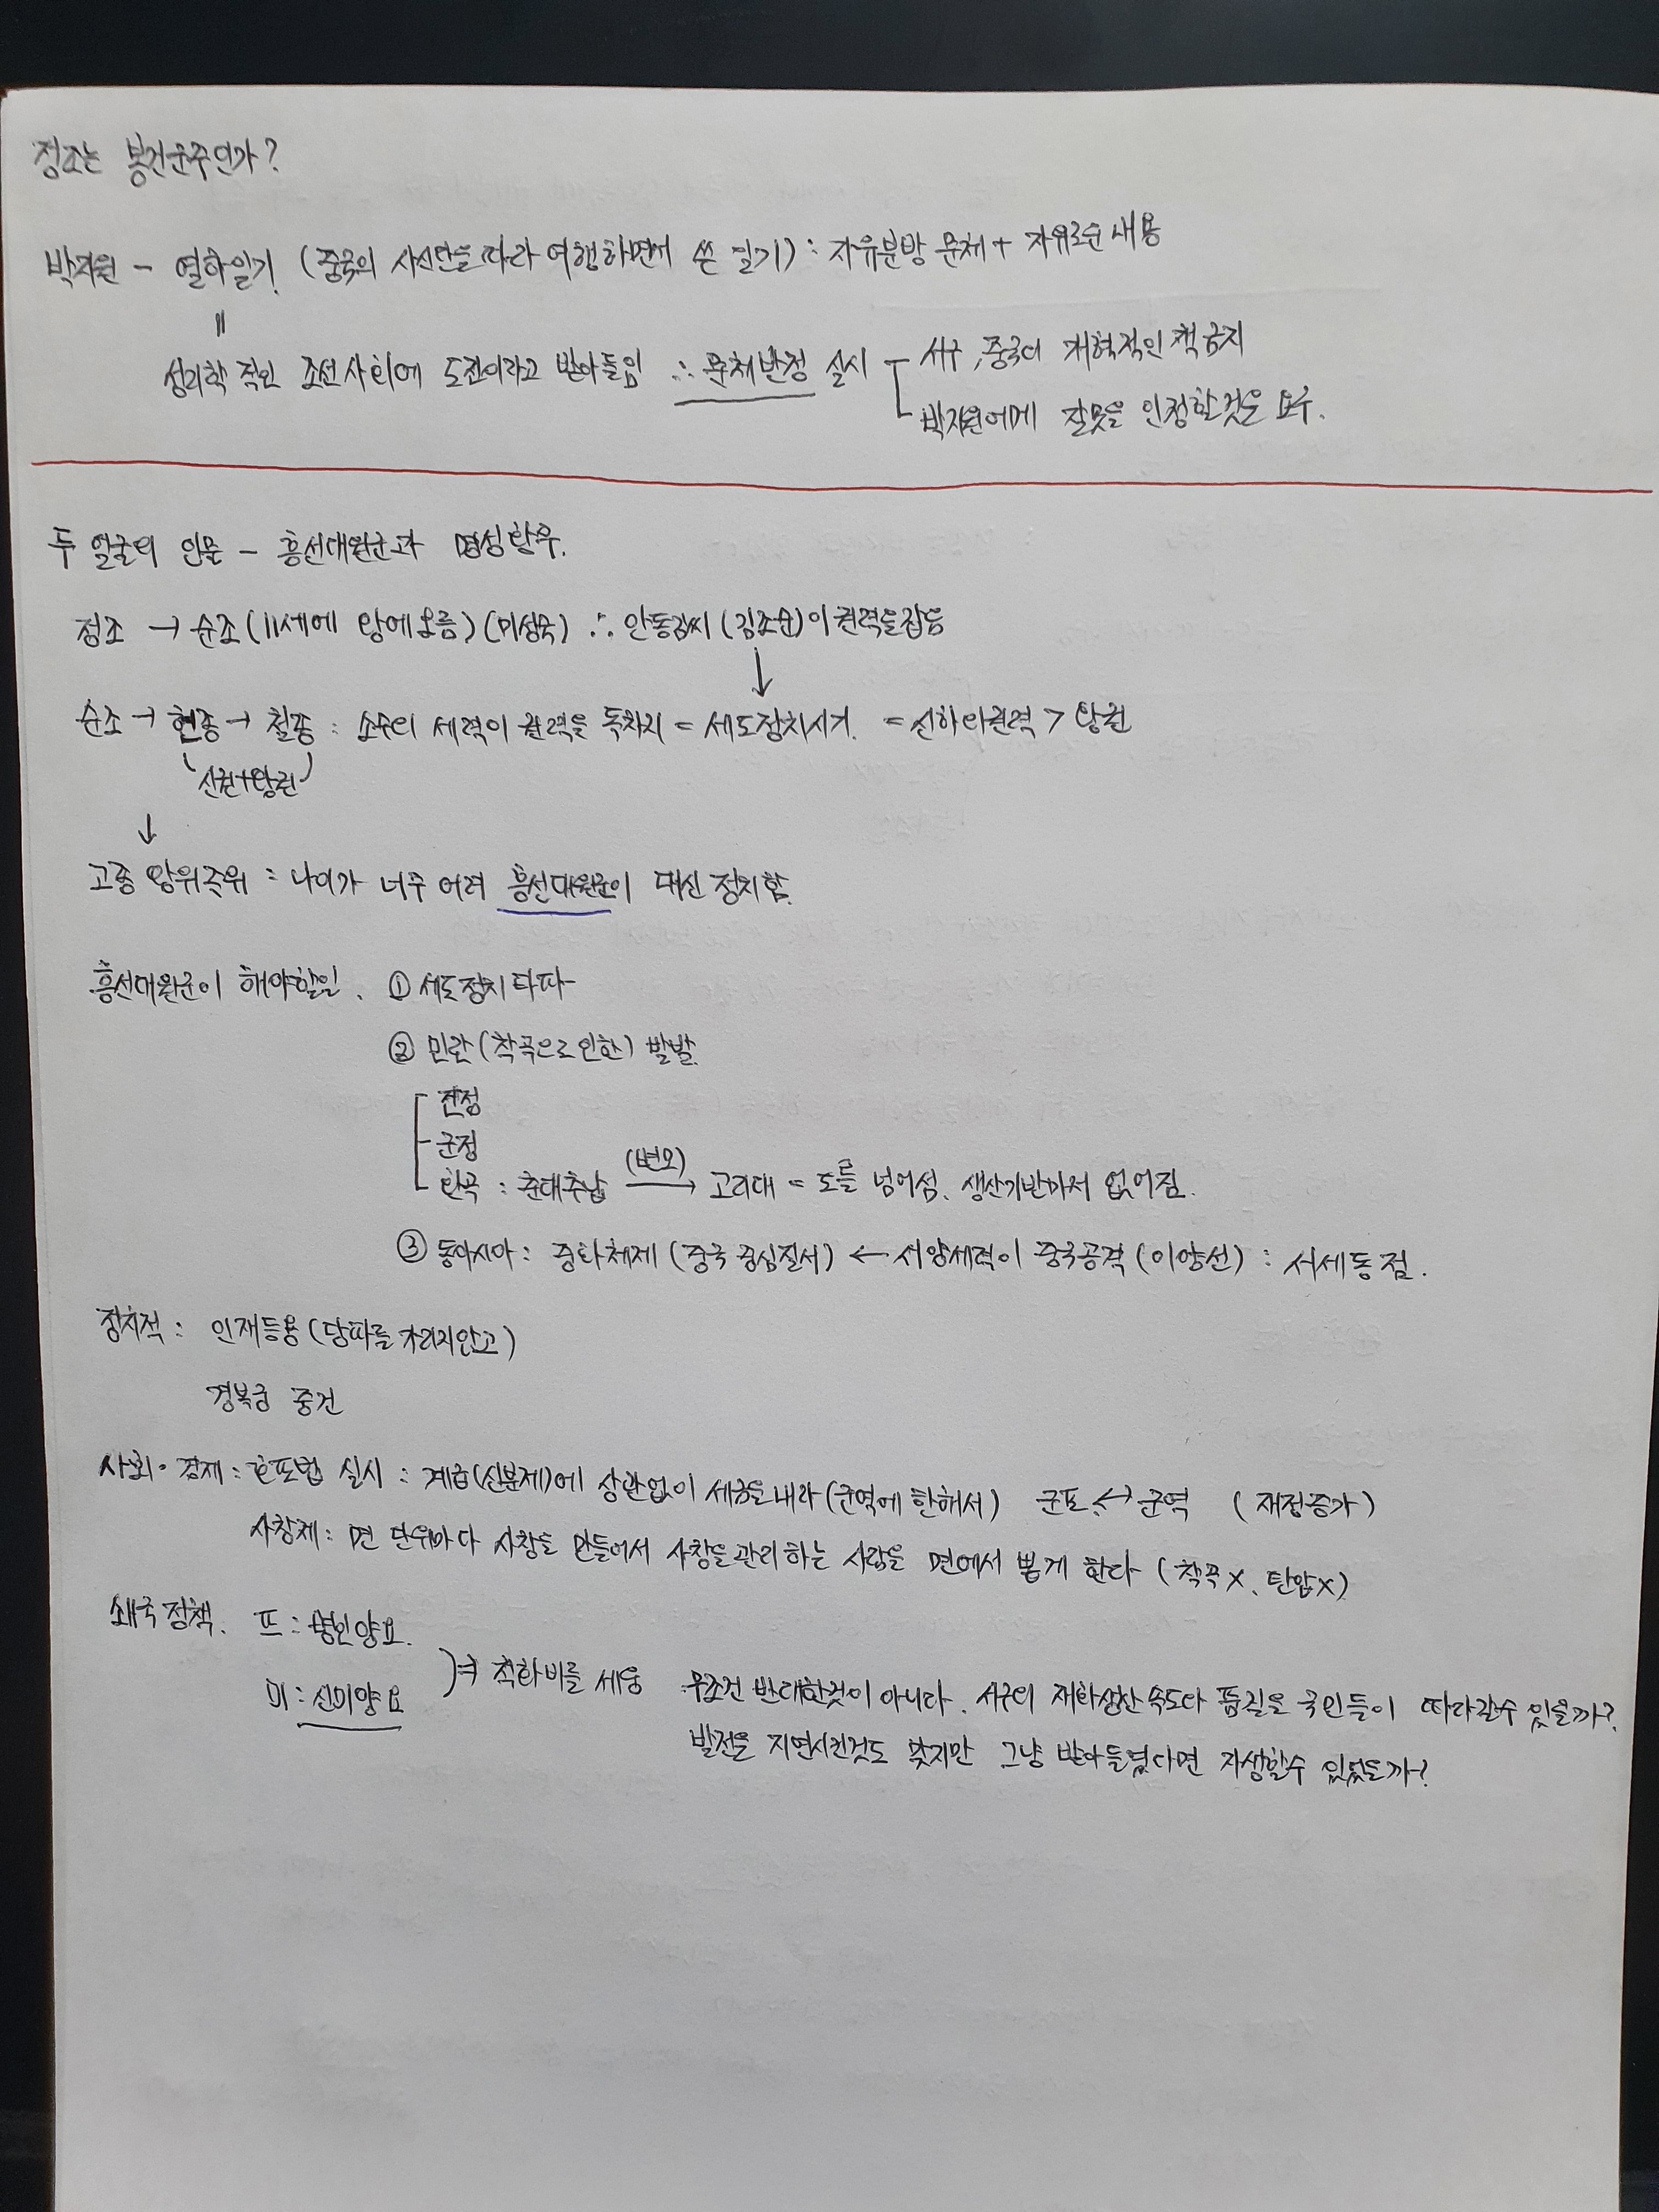 정조는 봉건군주인가?
박지원 - 열하일기 (중국의 사신단을 따라 여행하면서 쓴 일기) : 자유분방 문체 + 자유로운 내용
=
성리학적인 조선사회에 도전이라고 받아들임 ∴ 문체반정 실시 - 서구, 중국의 개혁적인 책 금지
박지원에게 잘못을 인정할것을 요구.
두 얼굴의 인물 - 흥선대원군과 명성황후.
정조 → 순조 (11세에 왕에오름) (미성숙) ∴ 안동김씨 (김조순)이 권력을잡음
↓
순조 → 현종 → 철종 : 소수의 세력이 권력을 독차지 = 세도정치시기. = 신하의권력 > 왕권
신권+왕권
↓
고종 왕위즉위 : 나이가 너무 어려 흥선대원군이 대신 정치함.
흥선대원군이 해야할일. ① 세도정치 타파
② 민란 (착곡으로 인한) 발발.
전정
군정
환곡 : 춘대추납 (변모) → 고리대 = 도를 넘어섬. 생산기반마저 없어짐.
③ 동아시아 : 중화체제 (중국 중심질서) ← 서양세력이 중국공격 (이양선) : 서세동점.
정치적 : 인재등용 (당파를 가리지안고)
경복궁 중건
사회·경제 : 호포법 실시 : 계급(신분제)에 상관없이 세금을내라 (군역에 한해서) 군포 ↔ 군역 (재정증가)
사창제 : 면 단위마다 사창을 만들어서 사창을관리하는 사람을 면에서 뽑게 한다 (착곡X, 탄압X)
쇄국정책. 프 : 병인양요.
미 : 신미양요 ⇒ 척화비를 세움 무조건 반대한것이 아니다. 서구의 재화생산 속도다 품질을 국민들이 따라갈수 있을까?
발전을 지연시킨것도 맞지만 그냥 받아들였다면 자생할수 있었을까?